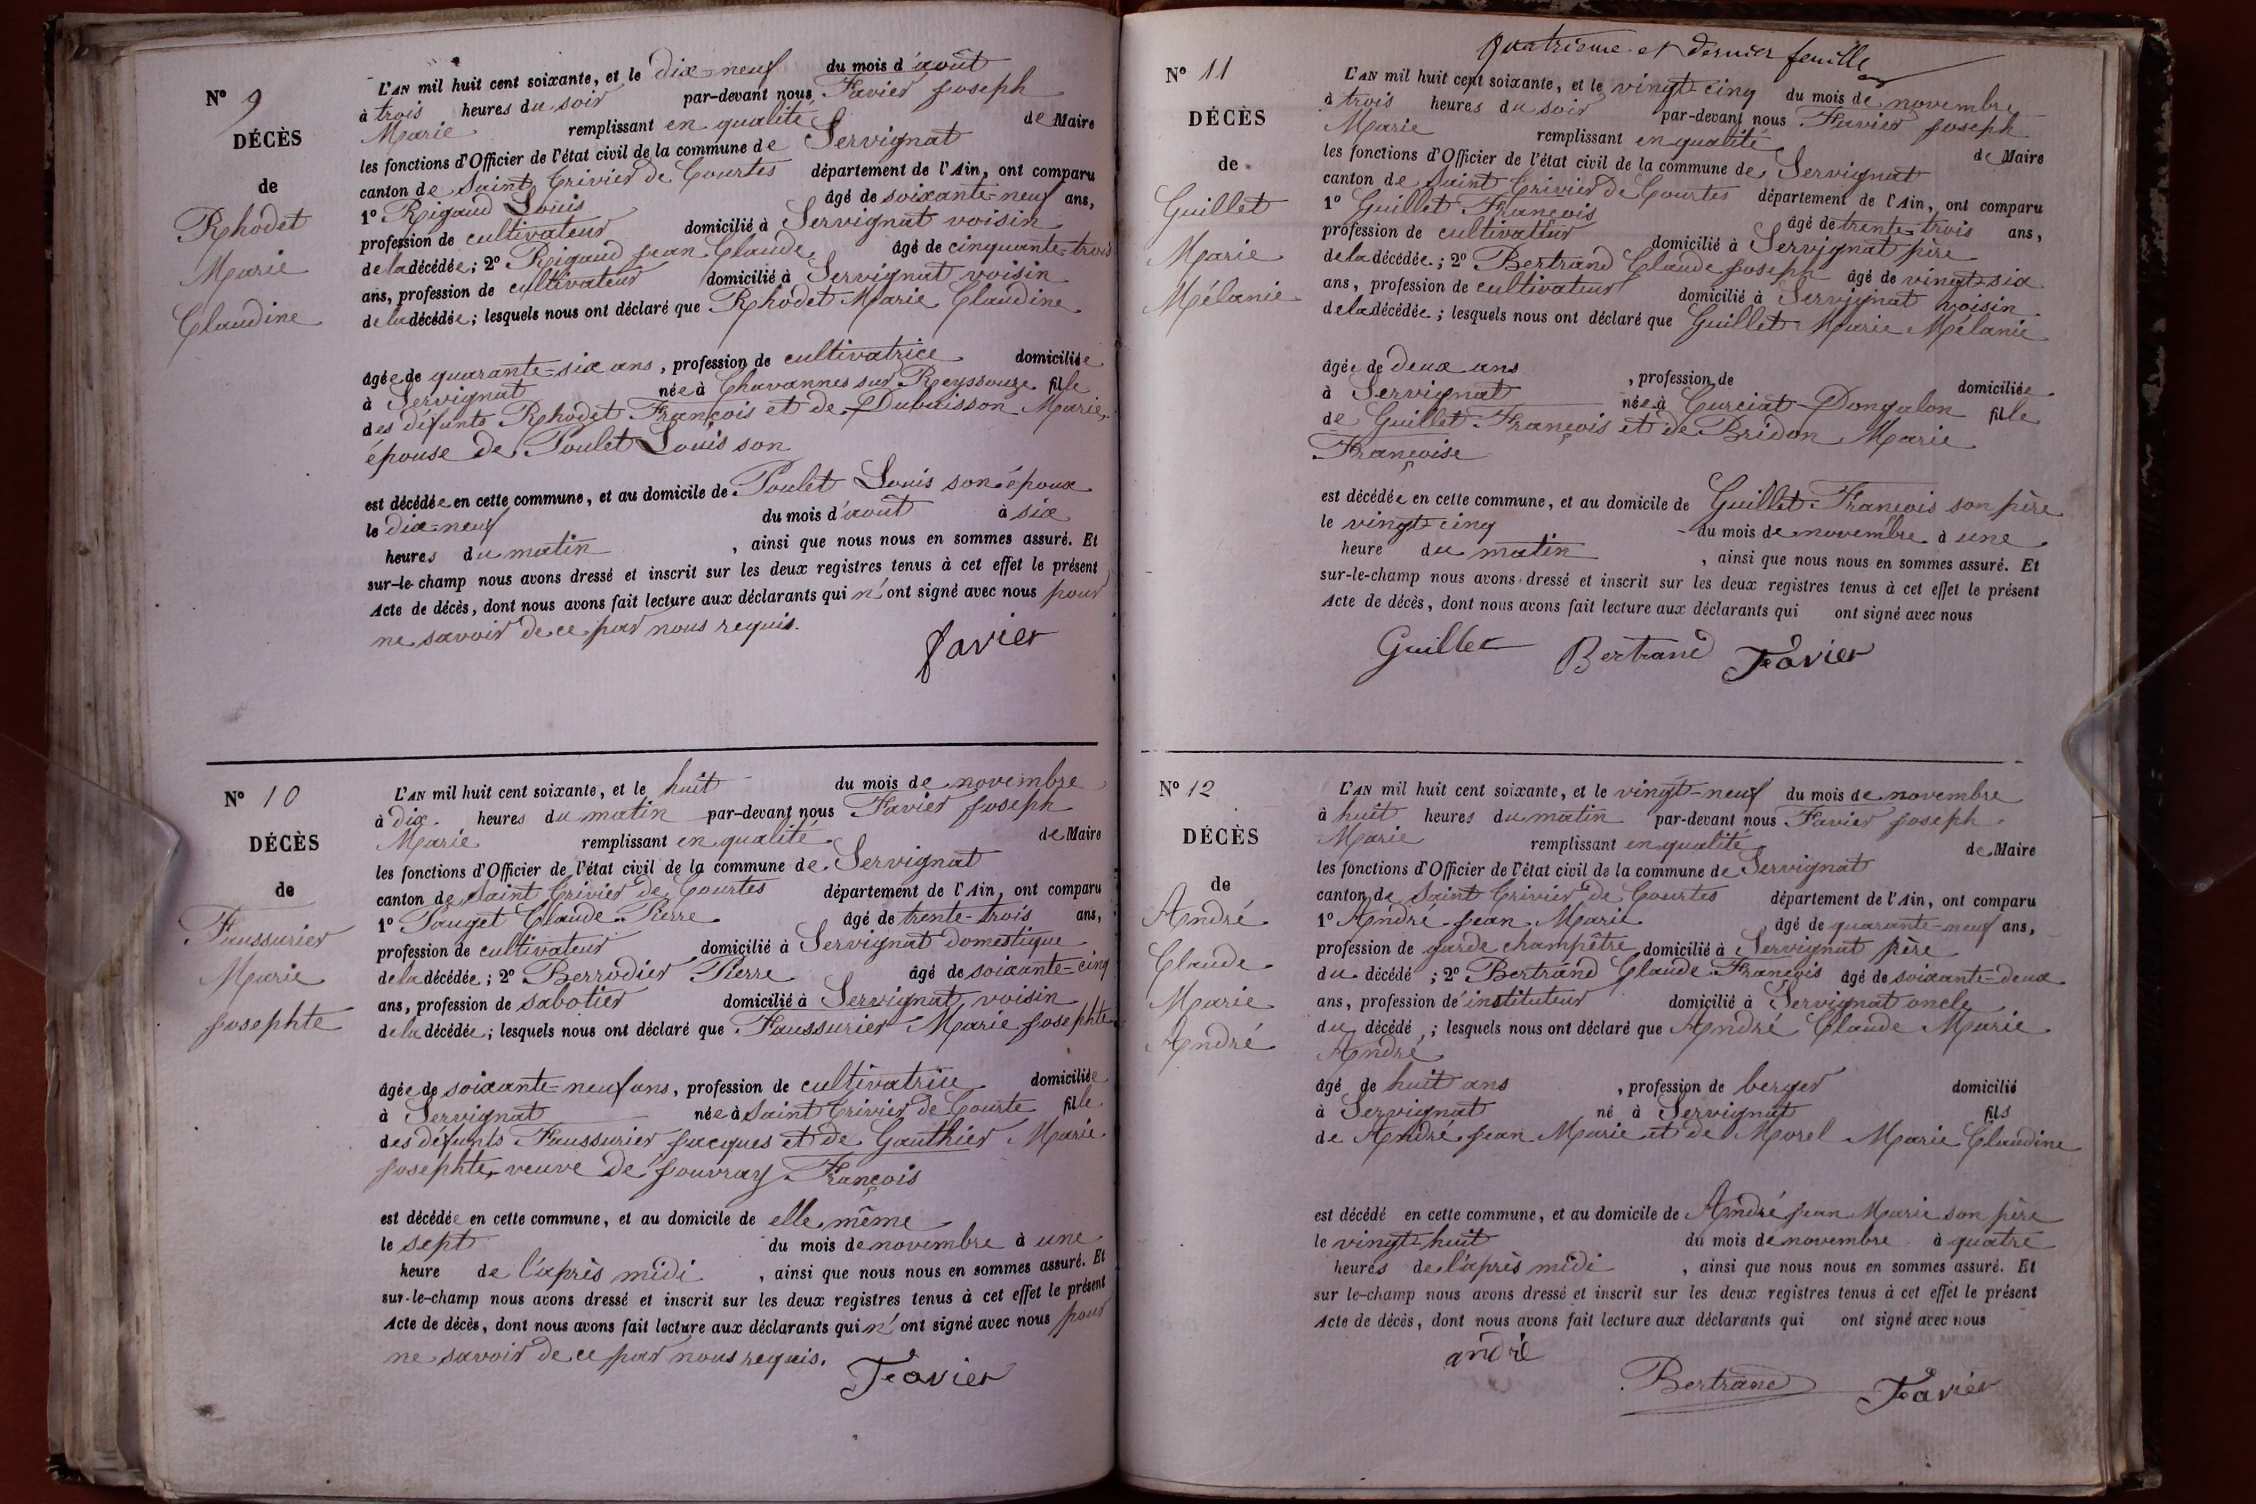 N° 9
DÉCÈS
de
Rhodet
Marie
Claudine
L'AN mil huit cent soixante, et le dix-neuf du mois d'août
à trois heures du soir par-devant nous Favier Joseph
Marie remplissant en qualité de Maire
les fonctions d'Officier de l'état civil de la commune de Servignat
canton de Saint Trivier de Courtes département de l'Ain, ont comparu
1° Rigaud Louis âgé de soixante-neuf ans,
profession de cultivateur domicilié à Servignat voisin
de la décédée; 2° Rigaud Jean Claude âgé de cinquante-trois
ans, profession de cultivateur domicilié à Servignat voisin
de la décédée; lesquels nous ont déclaré que Rhodet Marie Claudine
âgée de quarante-six ans, profession de cultivatrice domiciliée
à Servignat née à Chavannes sur Reyssouze fille
des défunts Rhodet François et de Dubuisson Marie,
épouse de Poulet Louis son
est décédée en cette commune, et au domicile de Poulet Louis son époux
le dix-neuf du mois d'août à six
heures du matin, ainsi que nous nous en sommes assuré. Et
sur-le-champ nous avons dressé et inscrit sur les deux registres tenus à cet effet le présent
Acte de décès, dont nous avons fait lecture aux déclarants qui n'ont signé avec nous pour
ne savoir de ce par nous requis.
Favier
N° 10
DÉCÈS
de
Faussurier
Marie
Josephte
L'AN mil huit cent soixante, et le huit du mois de novembre
à dix heures du matin par-devant nous Favier Joseph
Marie remplissant en qualité de Maire
les fonctions d'Officier de l'état civil de la commune de Servignat
canton de Saint Trivier de Courtes département de l'Ain, ont comparu
1° Pauget Claude Pierre âgé de trente-trois ans,
profession de cultivateur domicilié à Servignat domestique
de la décédée; 2° Berrodier Pierre âgé de soixante-cinq
ans, profession de sabotier domicilié à Servignat voisin
de la décédée; lesquels nous ont déclaré que Faussurier Marie Josephte
âgée de soixante-neuf ans, profession de cultivatrice domiciliée
à Servignat née à Saint Trivier de Courte fille
des défunts Faussurier Jacques et de Gauthier Marie
Josephte, veuve de Jouvray François
est décédée en cette commune, et au domicile de elle même
le sept du mois de novembre à une
heure de l'après midi, ainsi que nous nous en sommes assuré. Et
sur-le-champ nous avons dressé et inscrit sur les deux registres tenus à cet effet le présent
Acte de décès, dont nous avons fait lecture aux déclarants qui n'ont signé avec nous pour
ne savoir de ce par nous requis.
Favier
Quatrième et dernier feuille
N° 11
DÉCÈS
de
Guillet
Marie
Mélanie
L'AN mil huit cent soixante, et le vingt-cinq du mois de novembre
à trois heures du soir par-devant nous Favier Joseph
Marie remplissant en qualité de Maire
les fonctions d'Officier de l'état civil de la commune de Servignat
canton de Saint Trivier de Courtes département de l'Ain, ont comparu
1° Guillet François âgé de trente-trois ans,
profession de cultivateur domicilié à Servignat père
de la décédée; 2° Bertrand Claude Joseph âgé de vingt-six
ans, profession de cultivateur domicilié à Servignat voisin
de la décédée; lesquels nous ont déclaré que Guillet Marie Mélanie
âgée de deux ans, profession de domiciliée
à Servignat née à Curciat-Dongalon fille
de Guillet François et de Bridon Marie
Françoise
est décédée en cette commune, et au domicile de Guillet François son père
le vingt-cinq du mois de novembre à une
heure du matin, ainsi que nous nous en sommes assuré. Et
sur-le-champ nous avons dressé et inscrit sur les deux registres tenus à cet effet le présent
Acte de décès, dont nous avons fait lecture aux déclarants qui ont signé avec nous
Guillet Bertrand Favier
N° 12
DÉCÈS
de
André
Claude
Marie
André
L'AN mil huit cent soixante, et le vingt-neuf du mois de novembre
à huit heures du matin par-devant nous Favier Joseph
Marie remplissant en qualité de Maire
les fonctions d'Officier de l'état civil de la commune de Servignat
canton de Saint Trivier de Courtes département de l'Ain, ont comparu
1° André Jean Marie âgé de quarante-neuf ans,
profession de garde champêtre domicilié à Servignat père
du décédé; 2° Bertrand Claude François âgé de soixante-deux
ans, profession d'instituteur domicilié à Servignat oncle
du décédé; lesquels nous ont déclaré que André Claude Marie
André
âgé de huit ans, profession de berger domicilié
à Servignat né à Servignat fils
de André Jean Marie et de Morel Marie Claudine
est décédé en cette commune, et au domicile de André Jean Marie son père
le vingt-huit du mois de novembre à quatre
heures de l'après midi, ainsi que nous nous en sommes assuré. Et
sur le-champ nous avons dressé et inscrit sur les deux registres tenus à cet effet le présent
Acte de décès, dont nous avons fait lecture aux déclarants qui ont signé avec nous
andré
Bertrand Favier